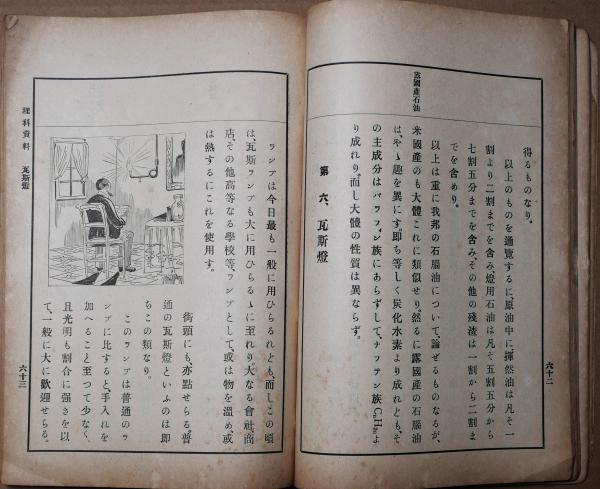 六十二
得るものなり。
以上のものを通覽するに、原油中に、揮然油は凡そ一
割より二割までを含み、燈用石油は凡そ五割五分から
七割五分までを含み、その他の殘渣は一割から二割ま
でを含めり。
露國產石油
以上は重に我邦の石腦油について、論ぜるものなるが、
米國產のも大體これに類似せり。然るに露國產の石腦油
は、やゝ趣を異にす。即ち等しく炭化水素より成れども、そ
の主成分はパラフィン族にあらずして、ナフテン族CnH2nよ
り成れり。而し大體の性質は異ならず。
第六、瓦斯燈
理科資料 瓦斯燈
六十三
ランプは今日最も一般に用ひらるれども、而しこの頃
は、瓦斯ランプも大に用ひらるゝに至れり。大なる會社、商
店、その他高等なる學校等、ランプとして、或は物を溫め、或
は熱するにこれを使用す。
街頭にも、亦點せらる。普
通の瓦斯燈といふのは即
ちこの類なり。
このランプは普通のラ
ンプに比すると、手入れを
加へること至つて少なく、
且光明も割合に强きを以
て、一般に大に歡迎せらる。